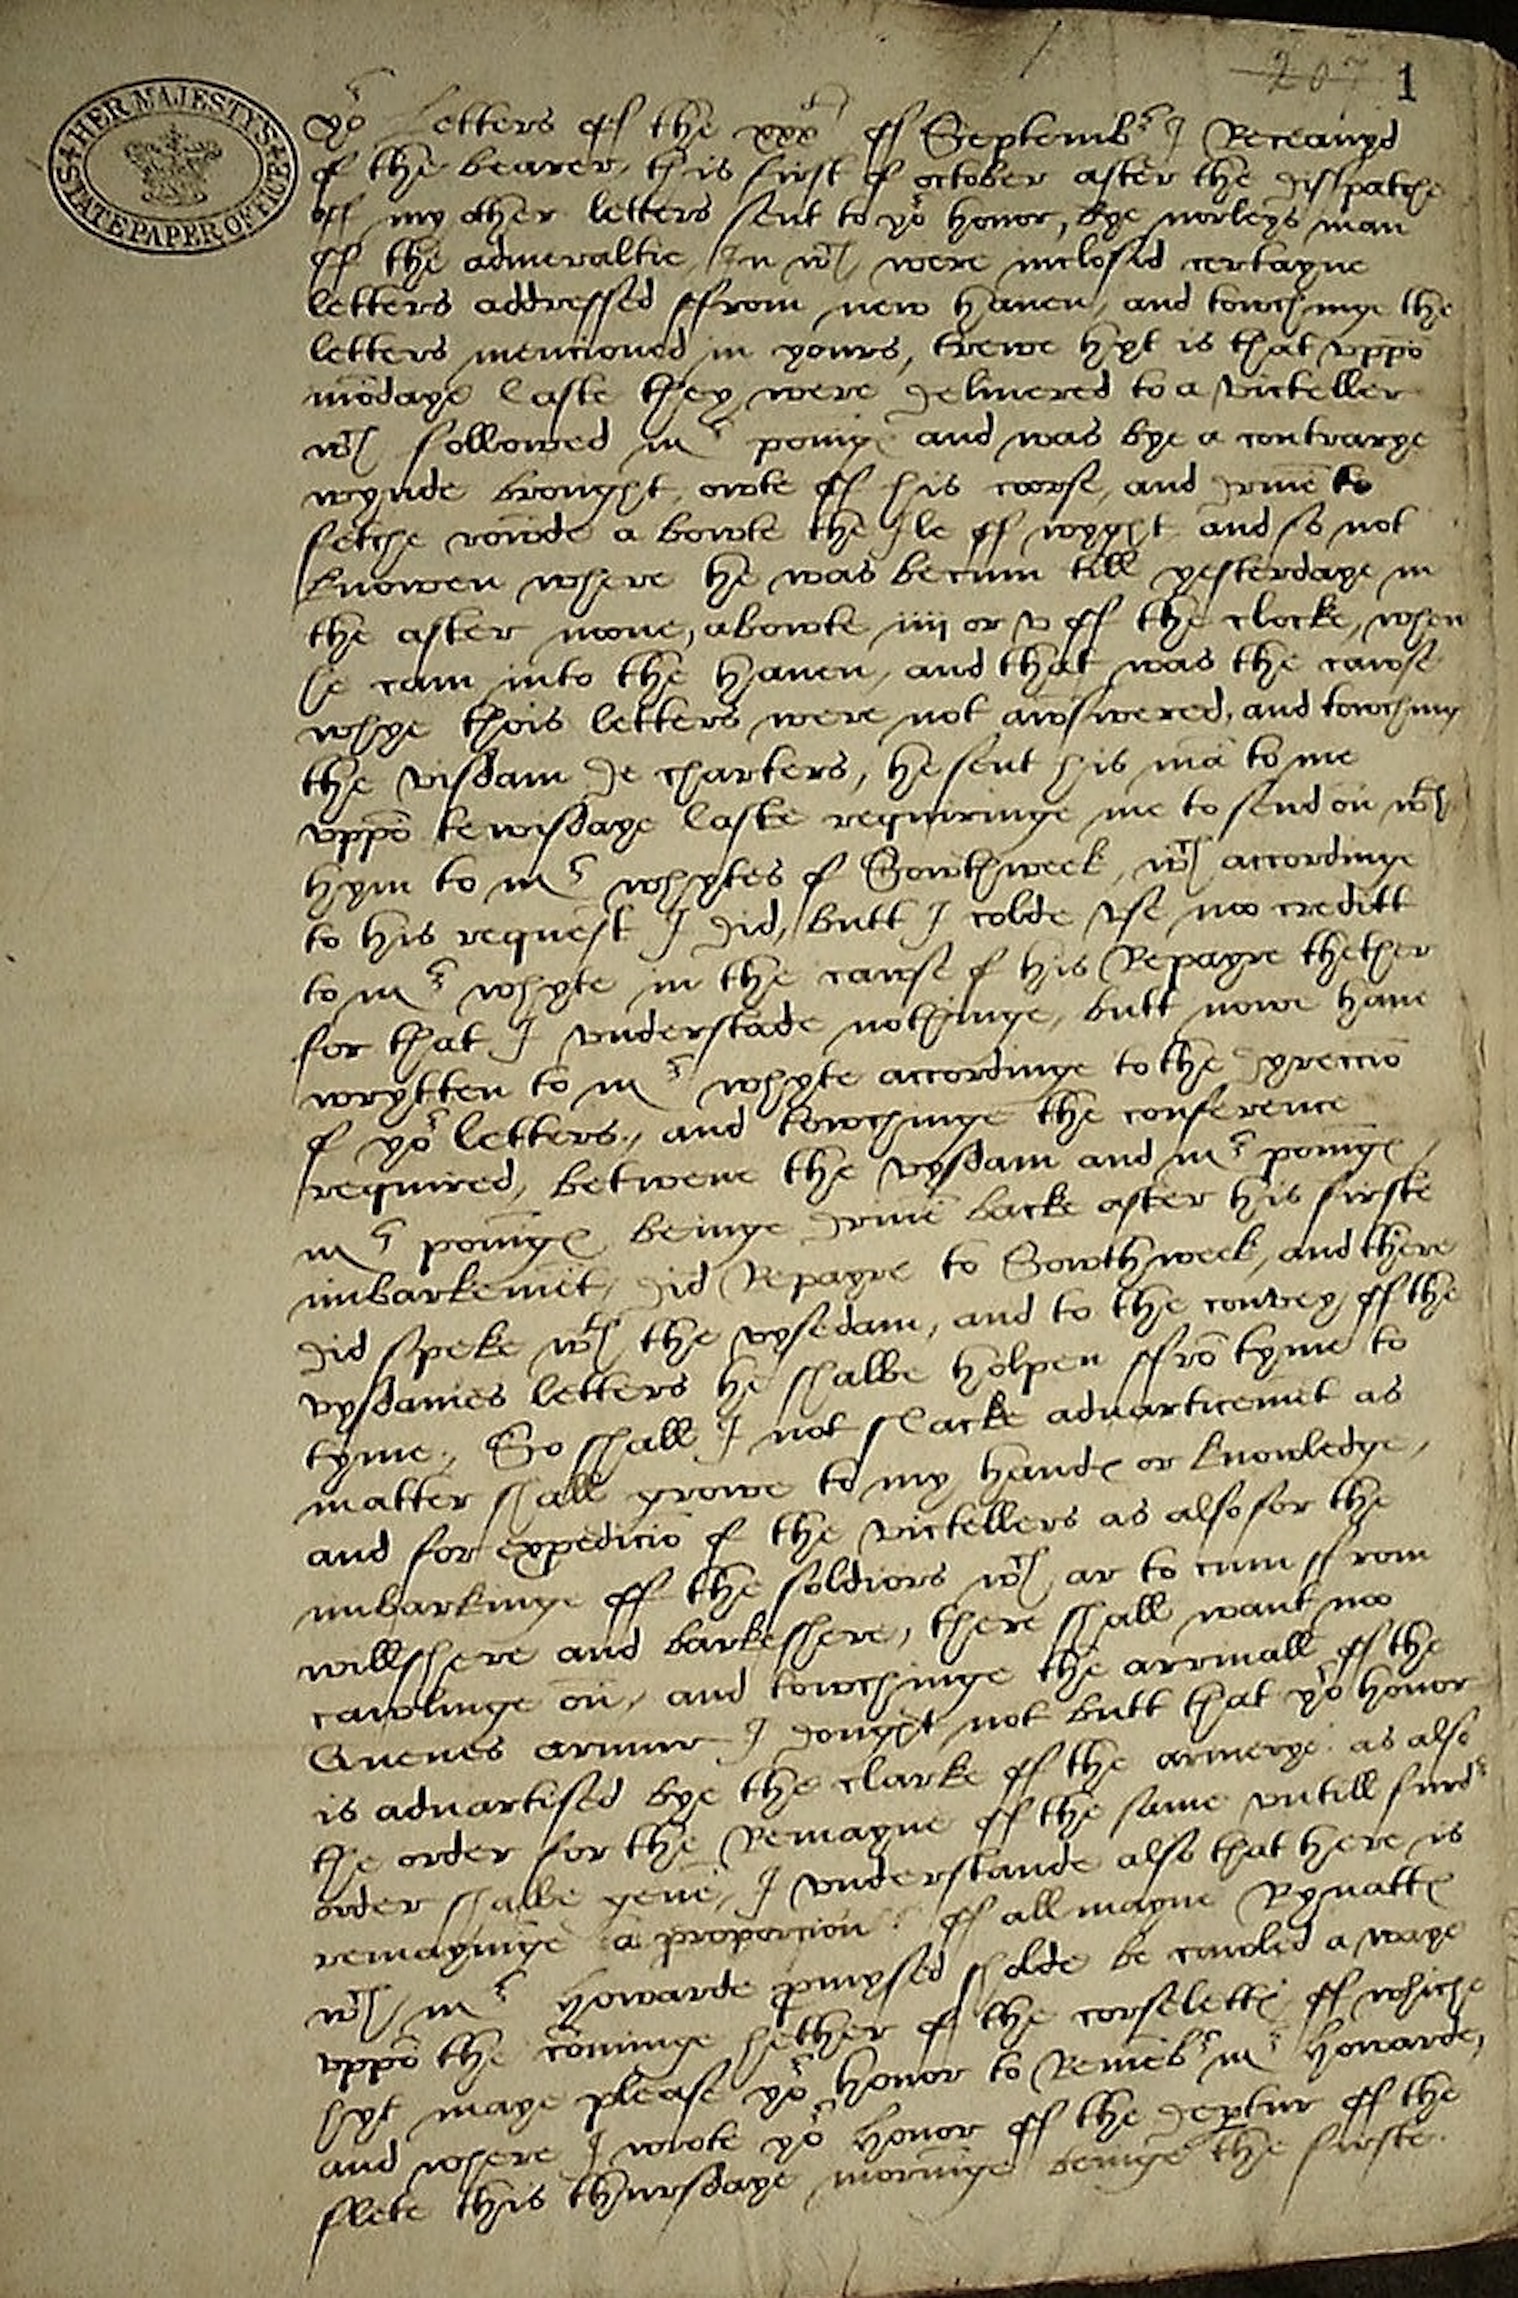 HER MAJESTY'S STATE PAPER OFFICE
207 1
yor Letters off the xxxth off Septembr I Receauyd
of the bearer, this first of october after the disspatche
off my other letters sent to yor honor, bye norleys man
off the admeraltie, In wch were inclosid certayne
letters addressed ffrom new haven, and towchinge the
letters mencioned in yours, trewe hyt is that uppō
mōdaye laste they were delivered to a victeller
wch followed mr poinigꝭ and was bye a contrarye
wynde brought owte off his coorse, and drivē to
fetche rownde a bowte the Ile off wyght and so not
knowen where he was becum till yesterdaye in
the after noone, abowte iiij or v off the clocke, when
he cam into the haven, and that was the cawse
whye thois letters were not awnswered, and towching
the visdam de charters, he sent his mā to me
uppō tewisdaye laste requiringe me to send on wth
hym to mr whytes of Sowthweek, wch accordinge
to his request I did, butt I colde use noo creditt
to mr whyte in the cawse of his Repayre thether
for that I understāde nothinge, butt nowe have
wrytten to mr whyte accordinge to the dyreccion
of yor letters, and towchinge the conference
required, betwene the vysdam and mr poinigꝭ,
mr poinigꝭ beinge drivē backe after his firste
imbarkemēt, did Repayre to Sowthweek, and there
did speke wth the vysedam, and to the convey off the
vysdames letters he shalbe holpen ffrō tyme to
tyme, So shall I not slacke advarticemēt as
matter shall growe to my handꝭ or knowledge,
and for expedicion of the victellers as also for the
imbarkinge off the soldiors wch ar to cum ffrom
willshere and barkeshere, there shall want noo
cawlinge on, and towchinge the arrivall off the
Quenes armur I dought not butt that yor honor
is advartised bye the clarke off the armerye as also
the order for the Remayne off the same untill furdr
order shalbe gevē, I understande also that here is
remayninge a proporcion off allmayne Ryvattꝭ
wch mr howarde promysed sholde be cawled a waye
uppō the cōminge hether of the corselettꝭ off whiche
hyt maye please yor honor to Remēbr mr howarde,
and where I wrote yor honor off the depertur off the
flete this thursdaye morninge beinge the firste